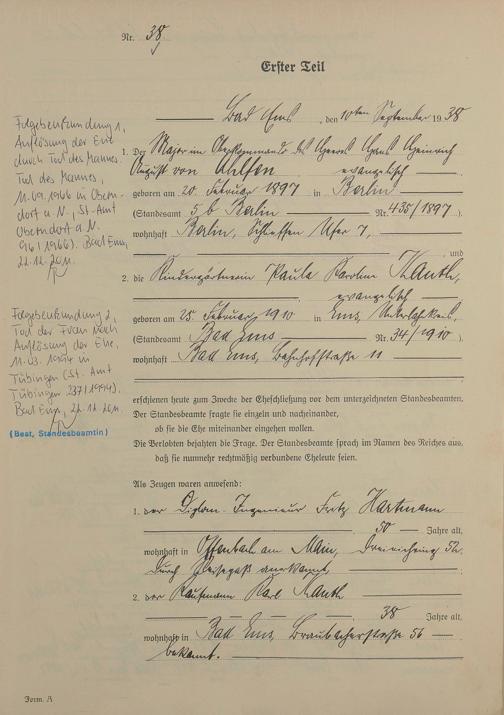 Nr. 38
Erster Teil
Bad Ems, den 10ten September 1938
Folgebeurkundung 1,
Auflösung der Ehe
durch Tod des Mannes.
Tod des Mannes,
11.09.1966 in Obern-
dorf a. N., (St.-Amt
Oberndorf a. N.
96/1966). Bad Ems,
22.12.2011
1. Der Major im Oberkommando des Heeres Hans Heinrich
August von Ahlfen
evangelisch
geboren am 20. Februar 1897 in Berlin
(Standesamt 5b Berlin Nr. 435/1897).
wohnhaft Berlin, Schleffen Ufer 7,
und
2. die Kindergärtnerin Paula Karoline Kauth,
evangelisch
geboren am 25. Februar 1910 in Ems, Unterlahnkreis,
(Standesamt Bad Ems Nr. 34/1910)
wohnhaft Bad Ems, Bahnhofstraße 11
Folgebeurkundung 2,
Tod der Frau nach
Auflösung der Ehe,
in
Tübingen (St. Amt
Tübingen 237/1994).
Bad Ems, 22.12.2011
(Beat, Standesbeamtin)
erschienen heute zum Zwecke der Eheschließung vor dem unterzeichneten Standesbeamten.
Der Standesbeamte fragte sie einzeln und nacheinander,
ob sie die Ehe miteinander eingehen wollen.
Die Verlobten bejahten die Frage. Der Standesbeamte sprach im Namen des Reiches aus,
daß sie nunmehr rechtmäßig verbundene Eheleute seien.
Als Zeugen waren anwesend:
1. der Diplom-Ingenieur Fritz Hartmann
50 Jahre alt,
wohnhaft in Offenbach am Main, Dreieichring 52.
durch Reisepaß anerkannt,
2. der Kaufmann Karl Kauth
38 Jahre alt,
wohnhaft in Bad Ems, Braubacherstraße 56
bekannt.
Form. A